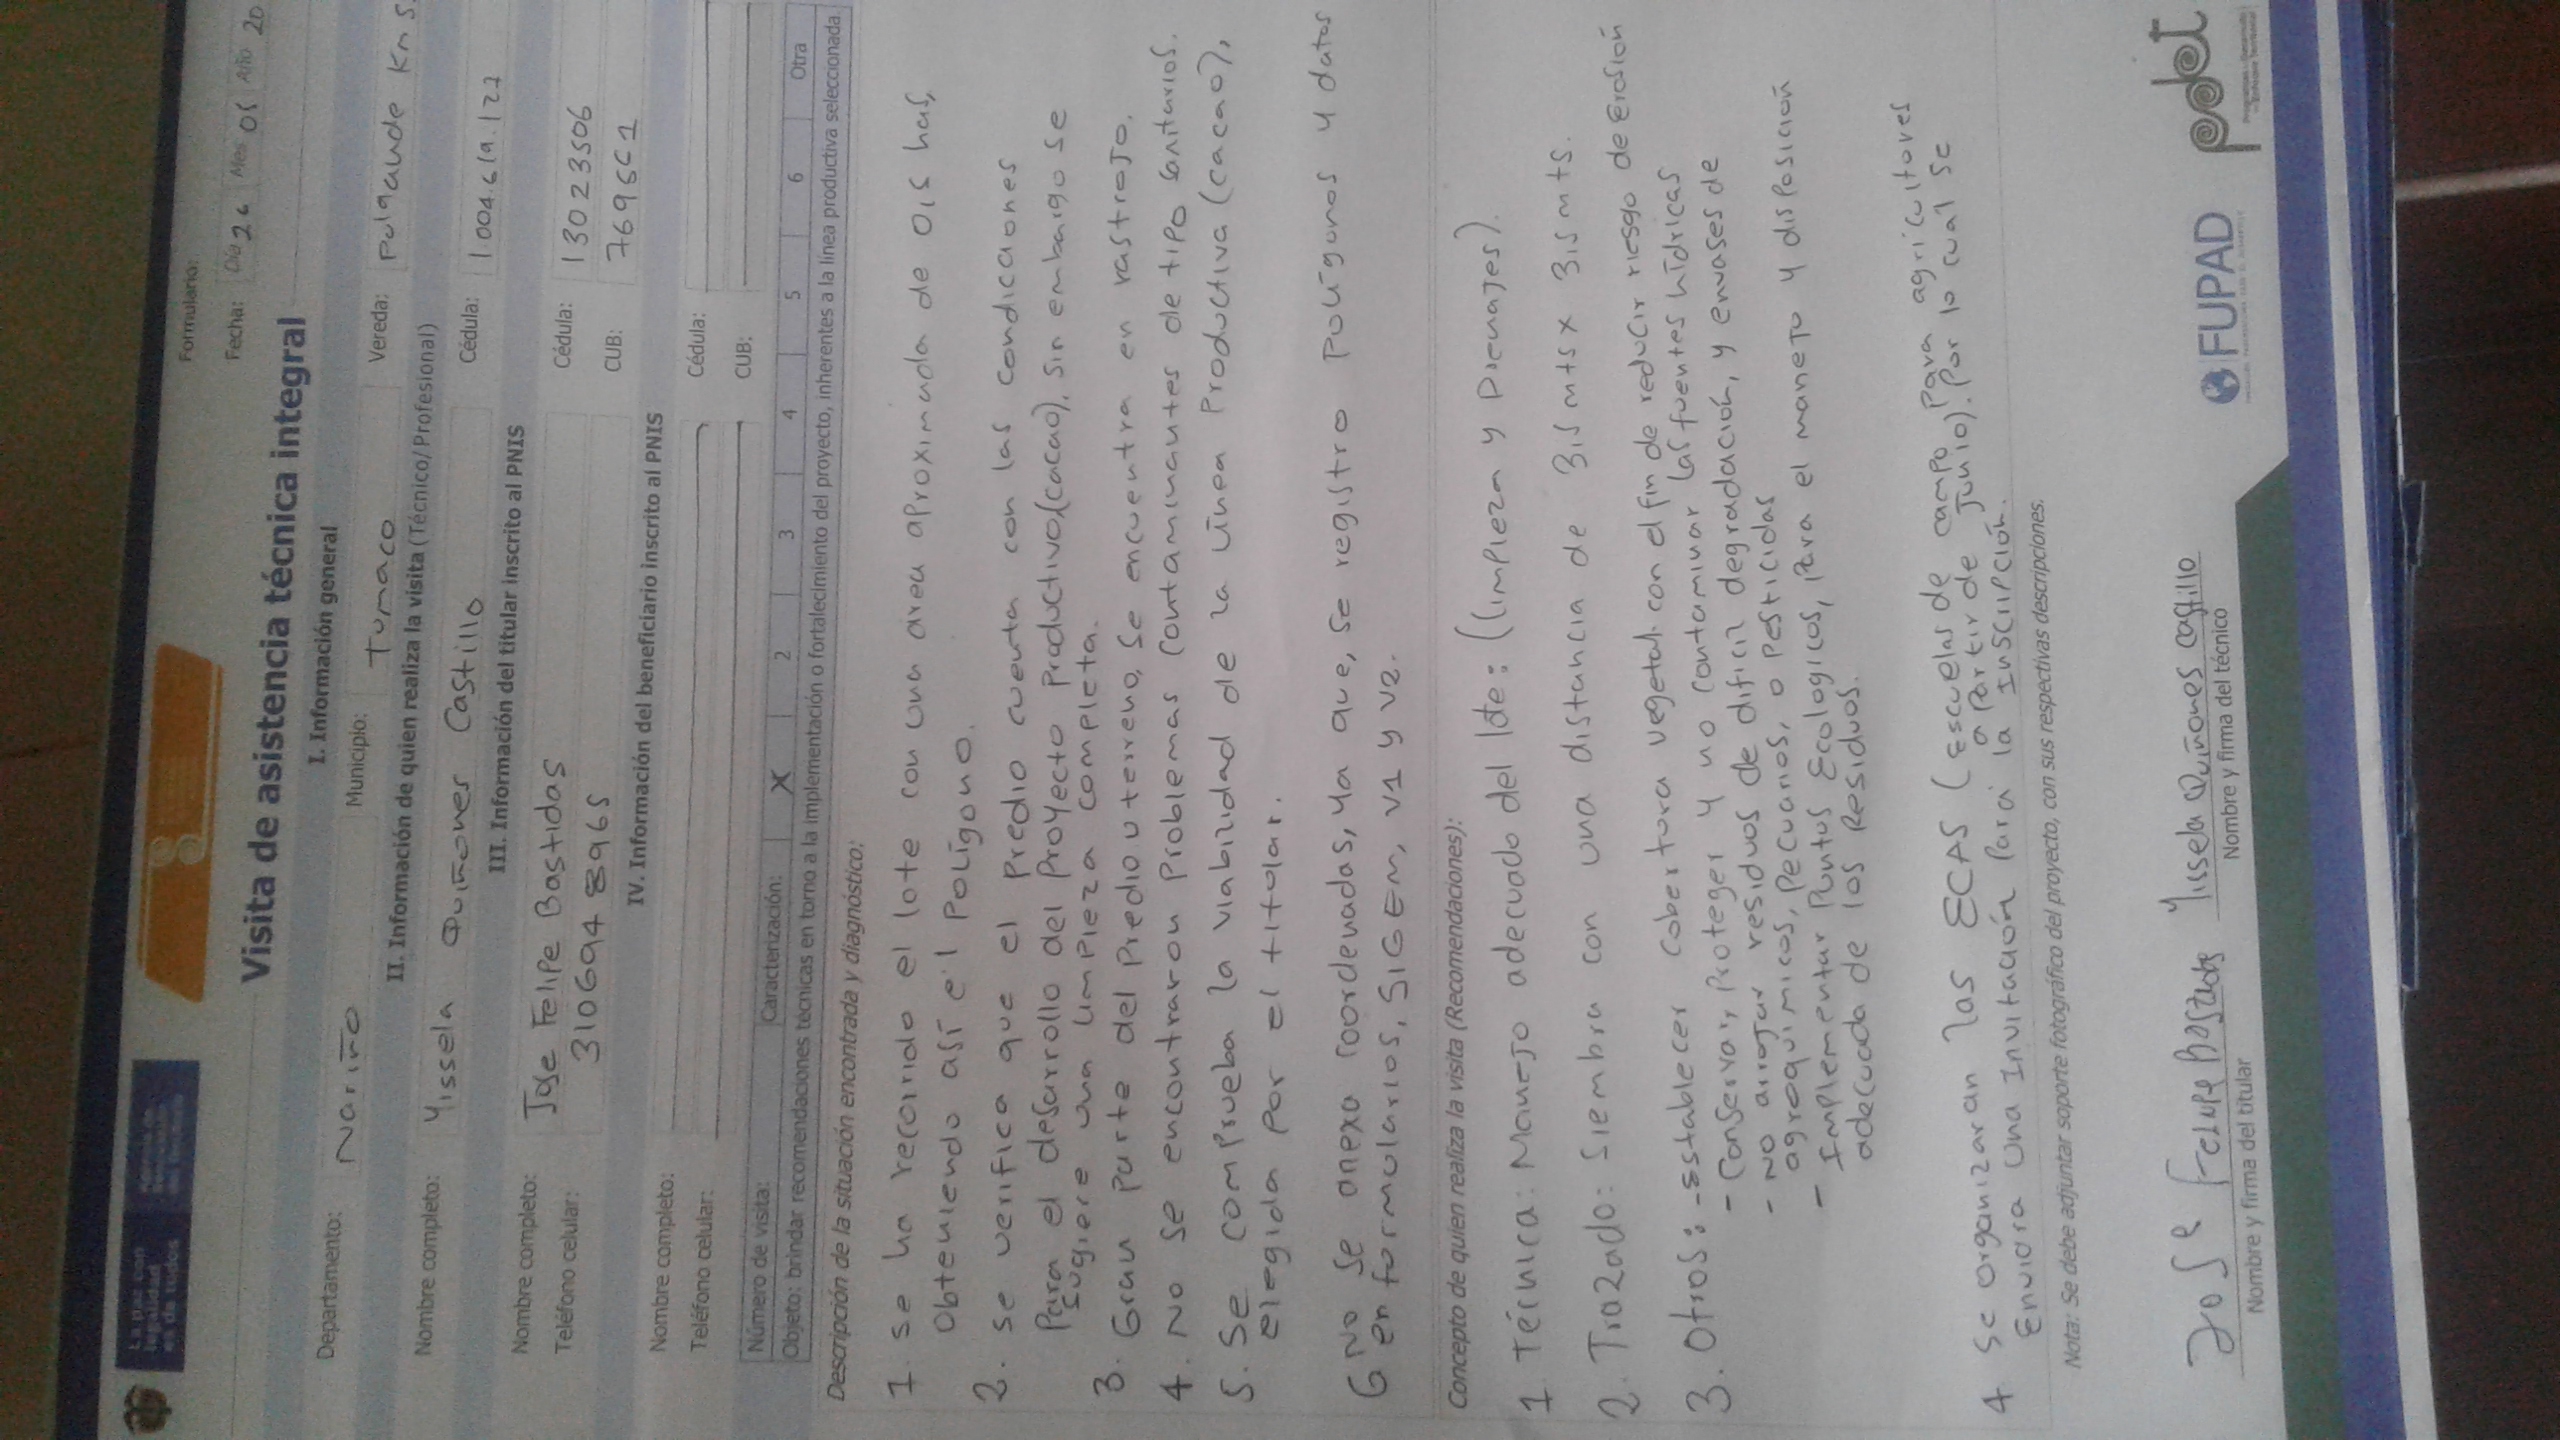 Formulario:
Fecha: Día 26 Mes 05 Año 20
Visita de asistencia técnica integral
I. Información general
Departamento: Nariño Municipio: Tumaco Vereda: Pulgande Km 5.
II. Información de quien realiza la visita (Técnico/Profesional)
Nombre completo: Yissela Quiñones Castillo Cédula: 1004.619.127
III. Información del titular inscrito al PNIS
Nombre completo: Jose Felipe Bastidas Cédula: 13023506
Teléfono celular: 3106948965 CUB:
IV. Información del beneficiario inscrito al PNIS
Nombre completo: Cédula:
Teléfono celular: CUB:
Número de visita: Caracterización: X 2 3 4 5 6 Otra
Objeto: brindar recomendaciones técnicas en torno a la implementación o fortalecimiento del proyecto, inherentes a la línea productiva seleccionada.
Descripción de la situación encontrada y diagnóstico:
1. se ha recorrido el lote con una área aproximada de 0,5 has,
obteniendo así el Polígono.
2. se verifica que el predio cuenta con las condiciones
Para el desarrollo del Proyecto Productivo(cacao), sin embargo se
sugiere una limpieza completa.
3. Gran parte del Predio u terreno, se encuentra en rastrojo.
4. No se encontraron Problemas contaminantes de tipo sanitarios.
5. Se comprueba la viabilidad de la línea Productiva (cacao),
elegida por el titular.
6 No se anexa coordenadas, ya que, se registro Polígonos y datos
en formularios, SIGEM, V1 y V2.
Concepto de quien realiza la visita (Recomendaciones):
1 Técnica: Manejo adecuado del lote: (limpieza y Drenajes).
2. Trazado: Siembra con una distancia de 3,5 mts x 3,5 mts.
3. Otros: -Establecer cobertura vegetal. con el fin de reducir riesgo de Erosión
- Conservar, Proteger y no contaminar las fuentes hídricas
- No arrojar residuos de dificil degradación, y envases de
agroquimicos, Pecuarios, o Pesticidas
- Implementar Puntos Ecologicos, Para el manejo y disposición
adecuada de los Residuos.
4 Se organizaran las ECAS (Escuelas de campo Para agricultores
a Partir de Junio). Por lo cual se
Enviara una Invitación Para la Inscripción.
Nota: Se debe adjuntar soporte fotográfico del proyecto, con sus respectivas descripciones.
Jose Felipe Bastidas Yissela Quiñones Castillo
Nombre y firma del titular Nombre y firma del técnico
FUPAD pdet